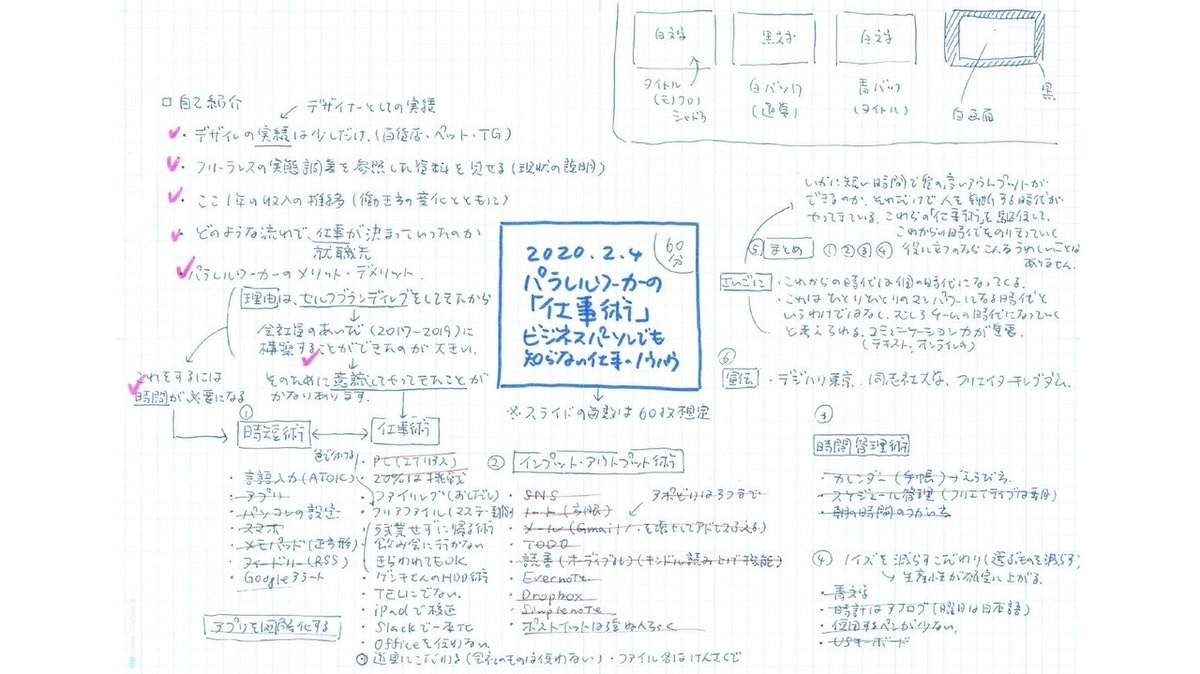 白文字
黒文字
白文字
タイトル
(モノクロ)
シャドウ
白バック
(通算)
青バック
(タイトル)
白画面
黒
□自己紹介
デザイナーとしての実績
・デザインの実績は少しだけ.(百貨店・ペット・TG)
・フリーランスの実態調書を参照した資料を見せる(現状の説明)
・ここ1年の収入の推移(働き方の変化とともに)
・どのような流れで、仕事が決まっていったのか
就職先
・パラレルワーカーのメリット・デメリット.
理由は、セルフブランディングをしてきたから
会社員のあいだ(2017-2019)に
構築することができたのが大きい.
そのために意識してやってきたことが
かなりあります.
これをするには
時間が必要になる
2020.2.4
60分
パラレルワーカーの
「仕事術」
ビジネスパーソンでも
知らない仕事のノウハウ
※スライドの枚数は60枚想定
いかに短い時間で質の高いアウトプットが
できるのか、それだけで人を判断する時代が
やってきている。これらの「仕事術」を駆使して、
これからの時代をのりきっていく
⑤まとめ
①②③④
役に立つのならこんなうれしいことは
ありません.
さいごに
・これからの時代は個の時代になってくる.
・これはひとりひとりのマンパワーになる時代と
いうわけではなく、むしろチームの時代になっていく
と考えられる.コミュニケーション力が重要.
(テキスト.オンラインの)
⑥
宣伝
・デジハリ東京.
クリエイターキングダム.
①
時短術
仕事術
・言語入力(ATOK)
・アプリ
・パソコンの設定
・スマホ
・メモパッド(正方形)
・フィードリー(RSS)
・Googleアラート
アプリを図解化する
・PC(2TB収入)
・20%は挑戦
・ファイリング
・クリアファイル
・残業せずに帰る術
・飲み会に行かない
・きらわれてもOK
・ゲンキさんのHDD術
・TELにでない.
・iPadで校正
・Slackで一本化
・Officeを使わない.
⊙道具にこだわる(会社のものは使わない)・ファイル名はけんさくで
② インプット・アウトプット術
・SNS
・ノート(方眼)
・メール(Gmail
・TODO
・読書(オーディブル)(キンドル読み上げ機能)
・Evernote
・Dropbox
・Simplenote
・ポストイットは強
アポどりは3つまで
③
時間管理術
・カレンダー(手帳)
・スケジュール管理(クリエイティブは
・朝の時間のつかい方
④ノイズを減らすこだわり(選ぶものを減らす)
生産性が確実に上がる.
・青文字
・時計はアナログ(曜日は日本語)
・使用するペンが少ない.
・USキーボード